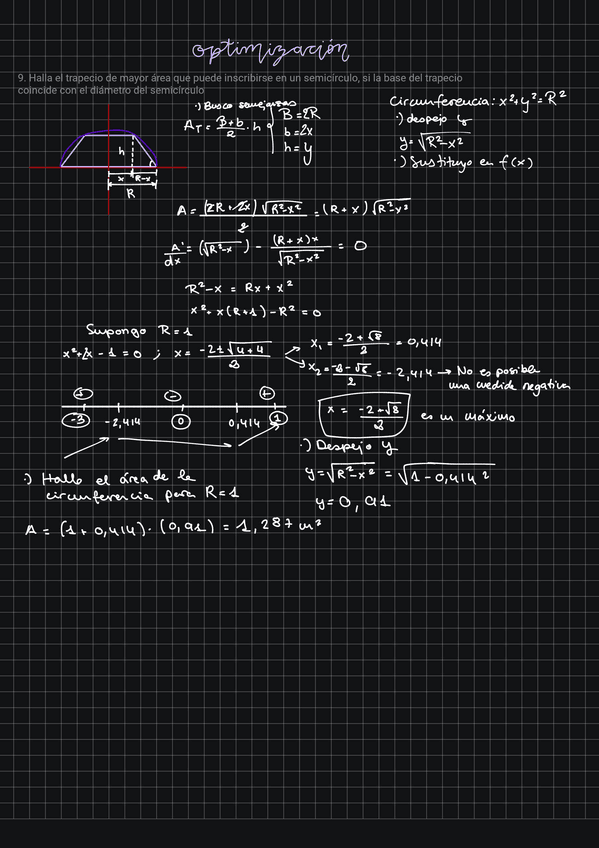 optimización
9. Halla el trapecio de mayor área que puede inscribirse en un semicírculo, si la base del trapecio
coincide con el diámetro del semicírculo
·) Busco semejanzas
A_T = (B+b)/2 · h
B = 2R
b = 2x
h = y
Circunferencia: x² + y² = R²
·) despejo y
y = √(R²-x²)
·) Sustituyo en f(x)
h
x R-x
R
A = (2R + 2x) √(R²-x²) / 2 = (R + x) √(R²-x²)
A'/dx = (√(R²-x)) - (R+x)x / √(R²-x²) = 0
R² - x = Rx + x²
x² + x(R+1) - R² = 0
Supongo R = 1
x² + 2x - 1 = 0 ; x = (-2 ± √(4+4)) / 2
x₁ = (-2 + √8) / 2 = 0,414
x₂ = (-2 - √8) / 2 = -2,414 → No es posible
una medida negativa
+ - +
-3 -2,414 0 0,414 1
x = (-2 + √8) / 2 es un máximo
·) Despejo y
y = √(R²-x²) = √(1 - 0,414²)
y = 0,91
·) Hallo el área de la
circunferencia para R = 1
A = (1 + 0,414) · (0,91) = 1,287 m²